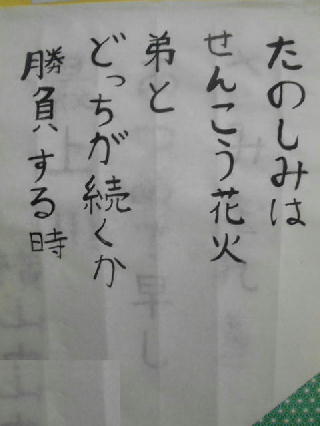 たのしみは
せんこう花火
弟と
どっちが続くか
勝負する時